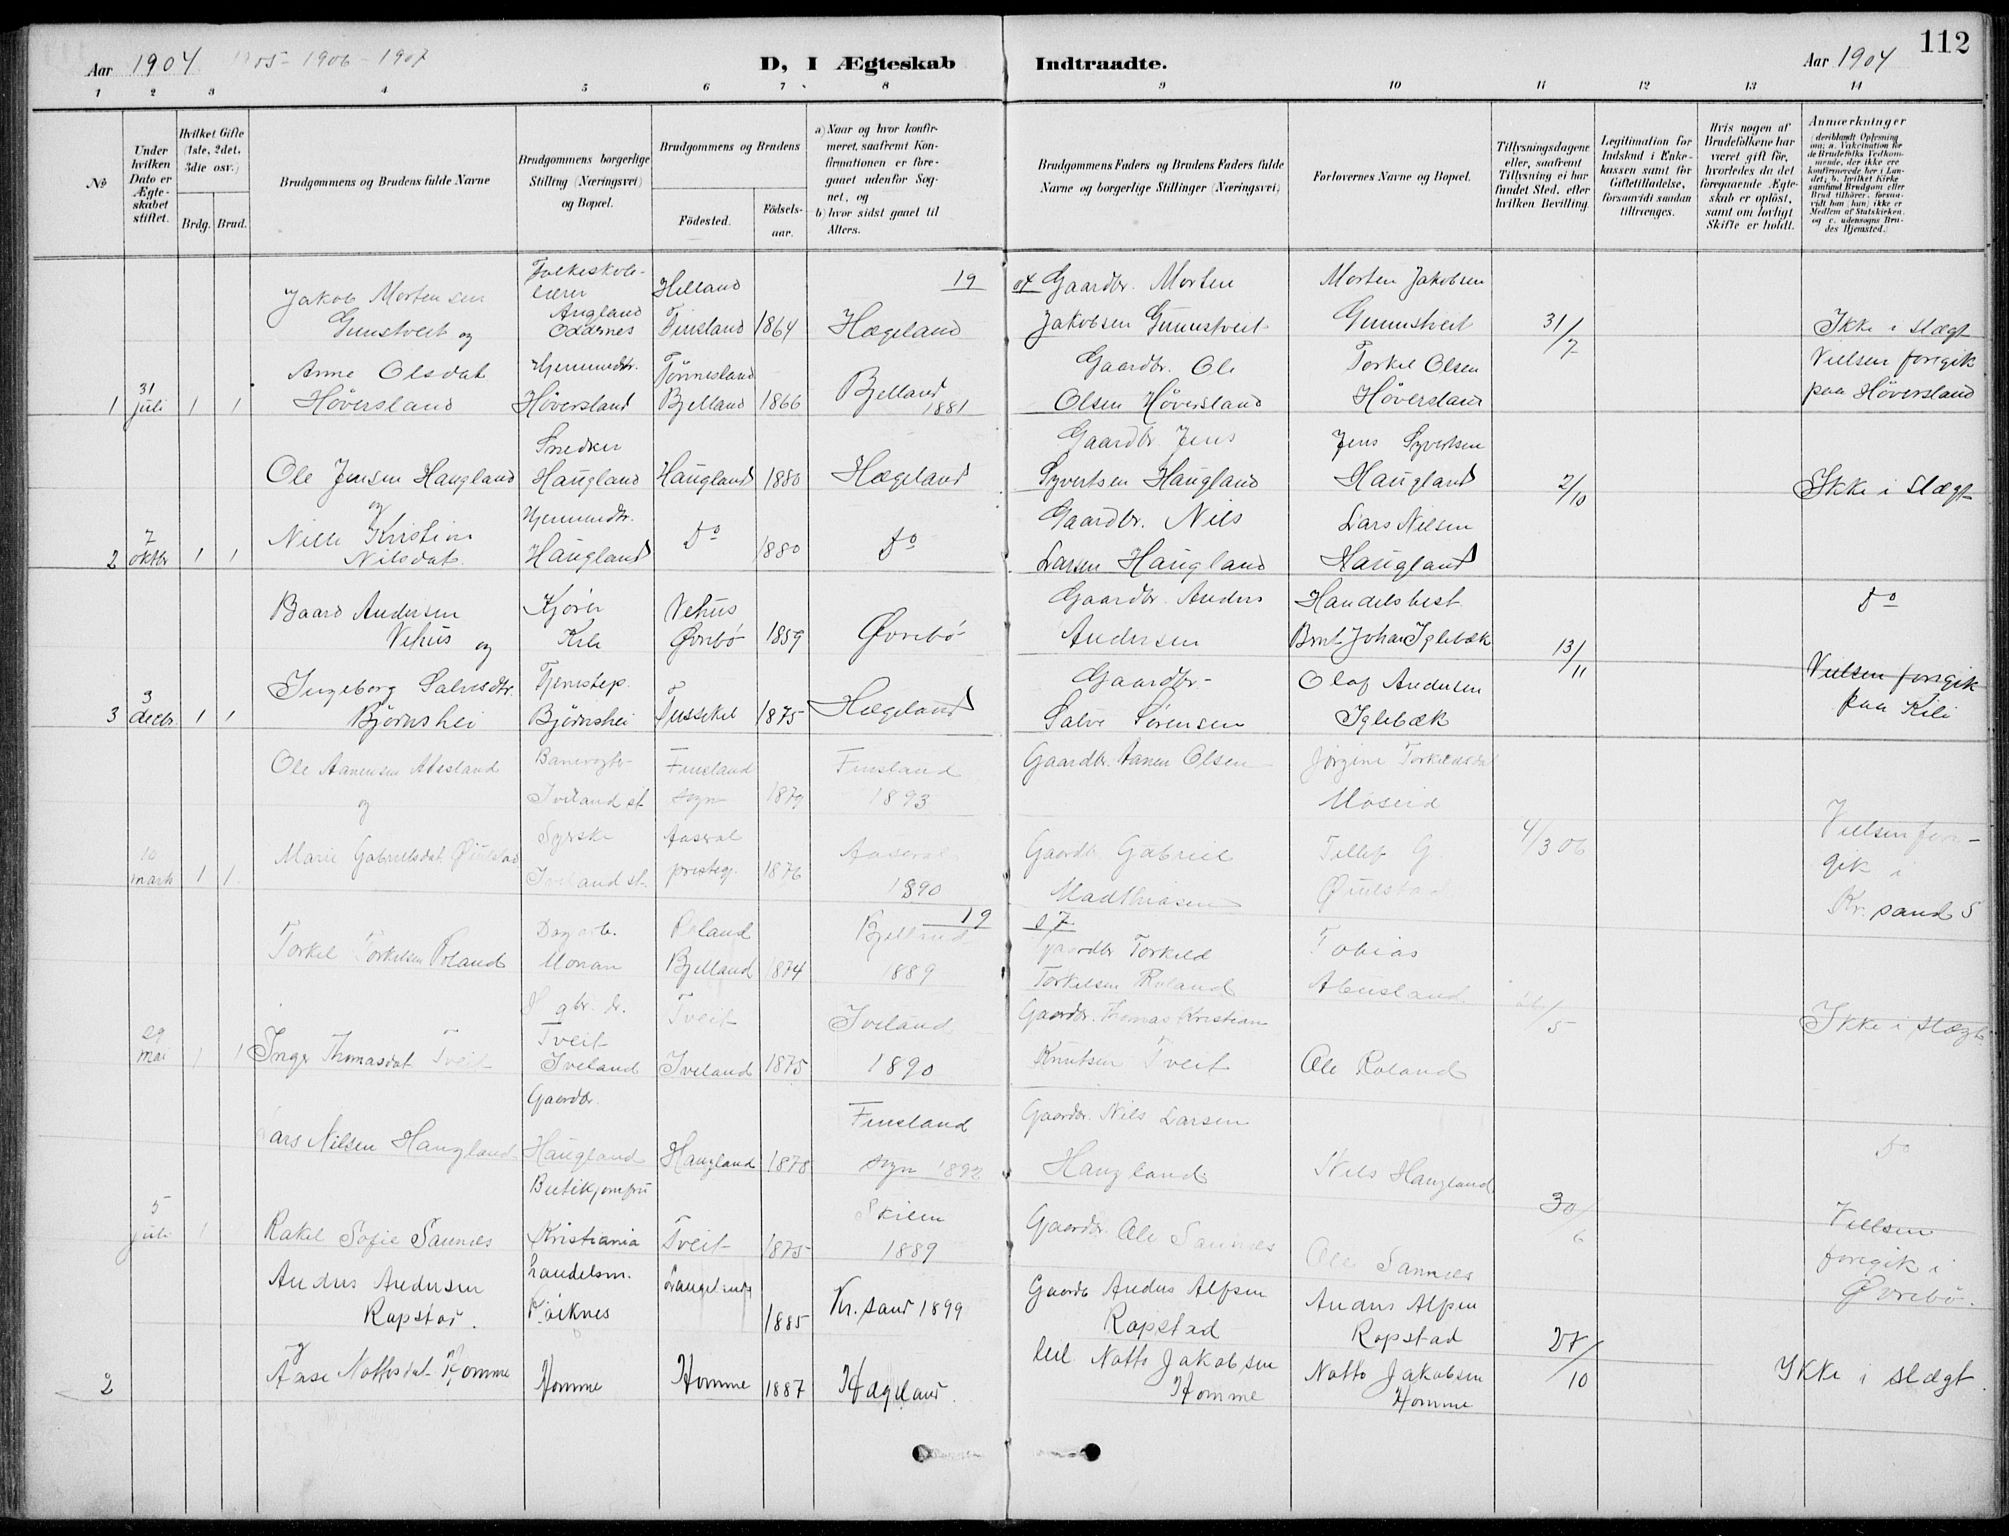 112
Aar 1904 1905 - 1906 - 1907
D, I Ægteskab Indtraadte.
Aar 1904
1 2 3 4 5 6 7 8 9 10 11 12 13 14
No
Under hvilken Dato er Ægteskabet stiftet.
Hvilket Gifte (1ste, 2det, 3die osv.)
Brdg. Brud.
Brudgommens og Brudens fulde Navne
Brudgommens borgerlige Stilling (Næringsvei) og Bopæl.
Brudgommens og Brudens
Födested.
Födselsaar.
a) Naar og hvor konfirmeret, saafremt Konfirmationen er foregaaet udenfor Sognet, og
b) hvor sidst gaaet til Alters.
Brudgommens Faders og Brudens Faders fulde Navne og borgerlige Stillinger (Næringsvei)
Forlovernes Navne og Bopæl.
Tillysningsdagene eller, saafremt Tillysning ei har fundet Sted, efter hvilken Bevilling
Legitimation for Indskud i Enkekassen samt for Giftetilladelse, forsaavidt saadan tiltrænges.
Hvis nogen af Brudefolkene har været gift før, hvorledes da det foregaaende Ægteskab er oplöst, samt om lovligt Skifte er holdt.
Anmærkninger
(deriblandt Oplysning om; a. Vakcination for de Brudefolks Vedkommende, der ikke ere konfirmerede her i Landet; b. hvilket Kirkesamfund Brudgom eller Brud tilhörer, forsaavidt han (hun) ikke er Medlem af Statskirken, og c. udensogns Brudes Hjemsted.)
19 04
Jakob Mortensen Folkeskole- Helland Gaardbr. Morten Morten Jakobsen
Gunstveit og lærer Augland Oddernes Finsland 1864 Hægeland Jakobsen Gunnstveit Gunnstveit 31/7 Ikke i slægt
Anne Olsdat Hjemmedtr. Tönnesland Gaardbr. Ole Torkel Olsen Vielsen foregik
1 31 juli 1 1 Höversland Höversland Bjelland 1866 Bjelland 1881 Olsen Höversland Höversland paa Höversland
Snedker Gaardbr. Jens Jens Syvertsen
Ole Jensen Haugland Haugland Haugland 1880 Hægeland Syvertsen Haugland Haugland 2/10 Ikke i slægt
og Kristine Hjemmedtr. Do Gaardbr. Nils Lars Nilsen
2 7 oktbr 1 1 Nilsdat. Haugland 1880 Do Larsen Haugland Haugland
Baard Andersen Kjörer Vehus Gaardbr. Anders Handelsbest. Do
Vehus og Kile Øvrebö 1859 Øvrebö Andersen Johan Iglebæk 13/11
Ingeborg Salvesdtr. Tjenestep. Gaardbr- Olaf Andersen Vielsen foregik
3 3 decbr 1 1 Björnshei Björnshei 1875 Hægeland Salve Sörensen Iglebæk paa Kile
Ole Aanensen Abesland Banevogter Finsland Finsland Gaardbr. Aanen Olsen Jörgine Torkildsdat
og Iveland st. sogn 1879 1893 Möseid
Syerske Aaseral Aaseral Gaardb. Gabriel Tellef G. 4/3 06 Vielsen fore-
10 marts 1 1 Marie Gabrielsdat. Iveland st. presteg. 1876 1890 Madthiasen gik i
Kr.sand S
19 07
Torkel Torkelsen Roland Dagarb. Monan Roland Bjelland 1874 Bjelland 1889 Gaardbr Torkild Torkelsen Roland Tobias Abusland
29 mai 1 1 Inger Thomasdat Tveit Tveit Iveland Tveit Iveland 1875 Iveland 1890 Gaardbr. Thomas Kristian Knutsen Tveit Ole Roland 26/5 Ikke i slægt
Gaardbr. Finsland Gaardbr. Nils Larsen
Lars Nilsen Haugland Haugland Haugland 1878 sogn 1892 Haugland Nils Haugland Do
Butikjomfru 30/6
5 juli 1 Rakel Sofie Sannes Kristiania Tveit 1875 Skien 1889 Gaardbr. Ole Sannes Ole Sannes Vielsen foregik i Øvrebö.
Anders Andersen handelsm. Gaardb Anders Alfsen Anders Alfsen
Rapstad. 1885 Kr.sand 1899 Rapstad Rapstad 27/10
og
2 Aase Nottosdat Homme Homme Homme 1887 Hægeland. Notto Jakobsen Homme Notto Jakobsen Homme Ikke i slægt